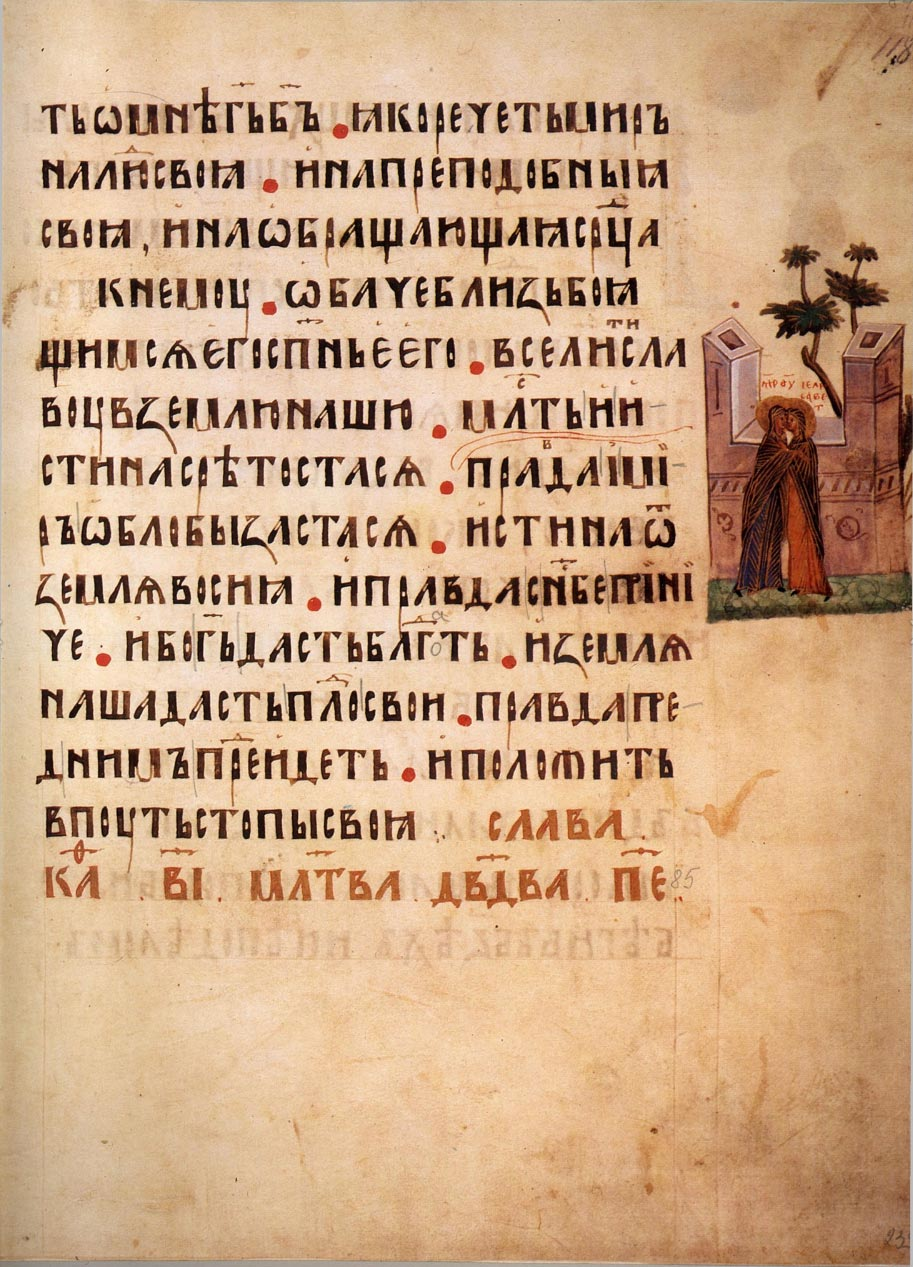 тьѡмнѣг҃ьб҃ъ . ꙗкоречетьмиръ
налюⷣсвоꙗ . инапреподобныꙗ
своꙗ , инаѡбращающаꙗсрⷣца
кнемоу . ѡбачеблизьбоꙗ
щимсѧегосп҃ньеего . вселитисла
воувъземлюнашю . млⷭтьии
стинасрѣтостасѧ . правⷣаими
ръѡблобызастасѧ . истинаѿ
землѧвосиꙗ . иправдаснб҃сеприни
че . ибог҃ьдастьблⷣаготь . иземлѧ
нашадастьплоⷣсвои . правдапре
днимъпреⷣидеть . иположить
впоутьстопысвоꙗ . слава
каⷴ . в҃і . млт҃ва дв҃два п҃е
85
118